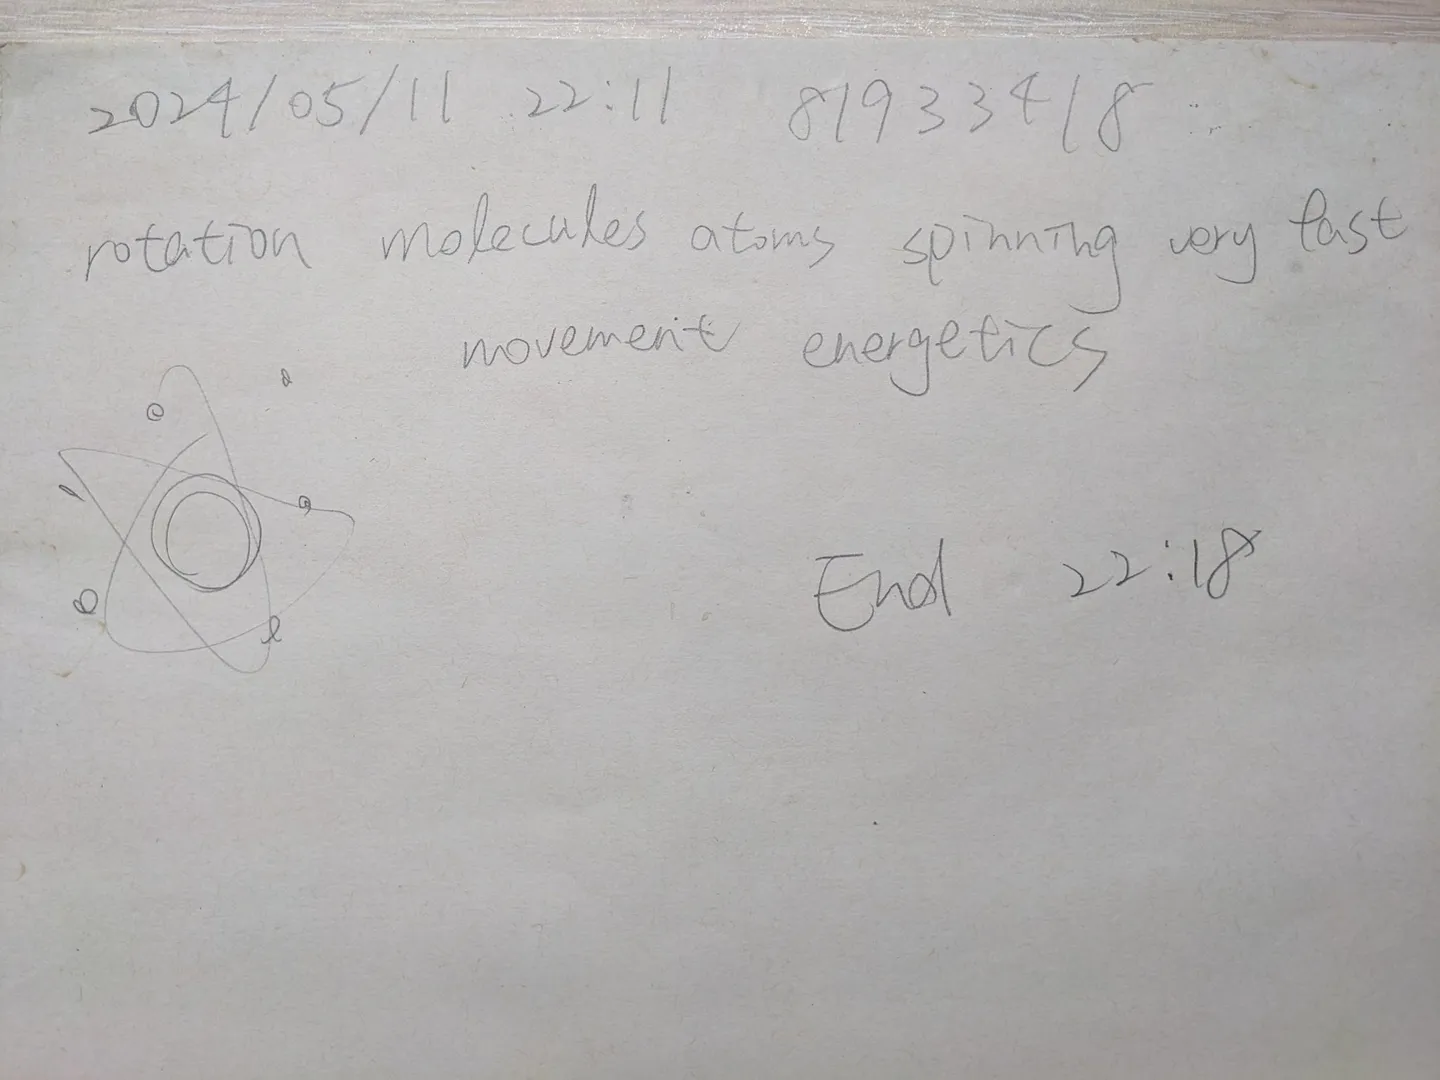 2024/05/11 22:11 81933418
rotation molecules atoms spinning very fast
movement energetics
End 22:18